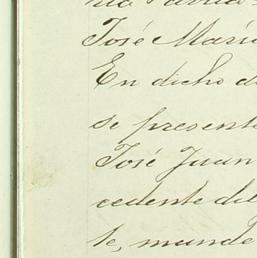 José María
En dicho d
se present
José Juan
cedente del
te, mande